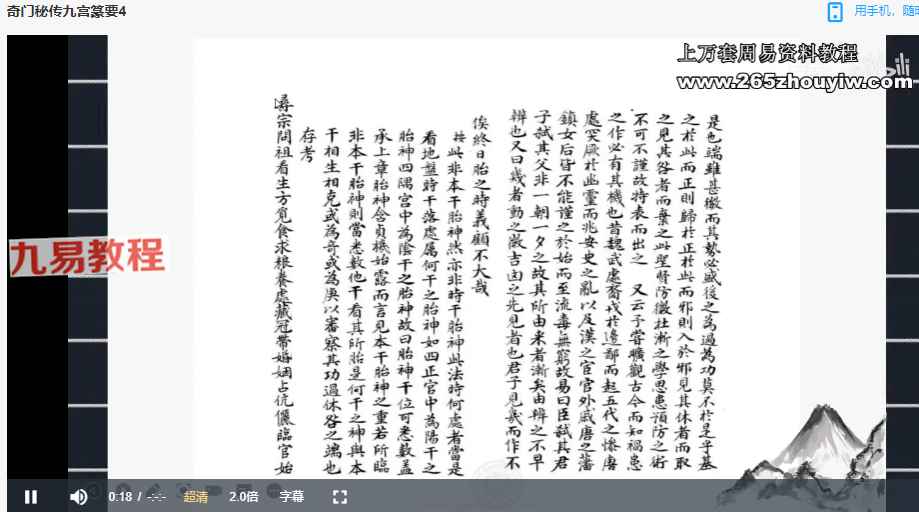 奇门秘传九宫篆要4
用手机，随时
上万套周易资料教程
www.265zhouyiw.com
是也端雖甚微而其勢必盛後之為過為功莫不於是乎基
之於此而正則歸於正於此而邪則入於邪見其休者而取
之見其咎者而棄之此聖賢防微杜漸之學思患預防之術
不可不謹故特表而出之 又云予嘗曠觀古今而知禍患
之作必有其機也昔魏武處裔戎於邊鄙而起五代之慘唐
處突厥於幽靈而兆安史之亂以及漢之宦官外戚唐之藩
鎮女后皆不能謹之於始而至流毒無窮故易曰臣弑其君
子弑其父非一朝一夕之故其所由来者漸矣由辨之不早
辨也又曰幾者動之微吉凶之先見者也君子見幾而作不
俟終日胎之時義顧不大哉
按此非本干胎神然亦非時干胎神此法時何處者當是
看地盤時干落處属何干之胎神如四正官中為陽干之
胎神四隅宫中為陰干之胎神故曰胎神干位可悉數蓋
承上章胎神含貞機始露而言見本干胎神之重若所臨
非本干胎神則當悉數他干看其所胎是何干之神與本
干相生相克或為奇或為庚以審察其功過休咎之端也
存考
尋宗問祖看生方覓食求根養處藏冠帶婚姻占伉儷臨官始
九易教程
0:18 / -:-:-
超清
2.0倍
字幕